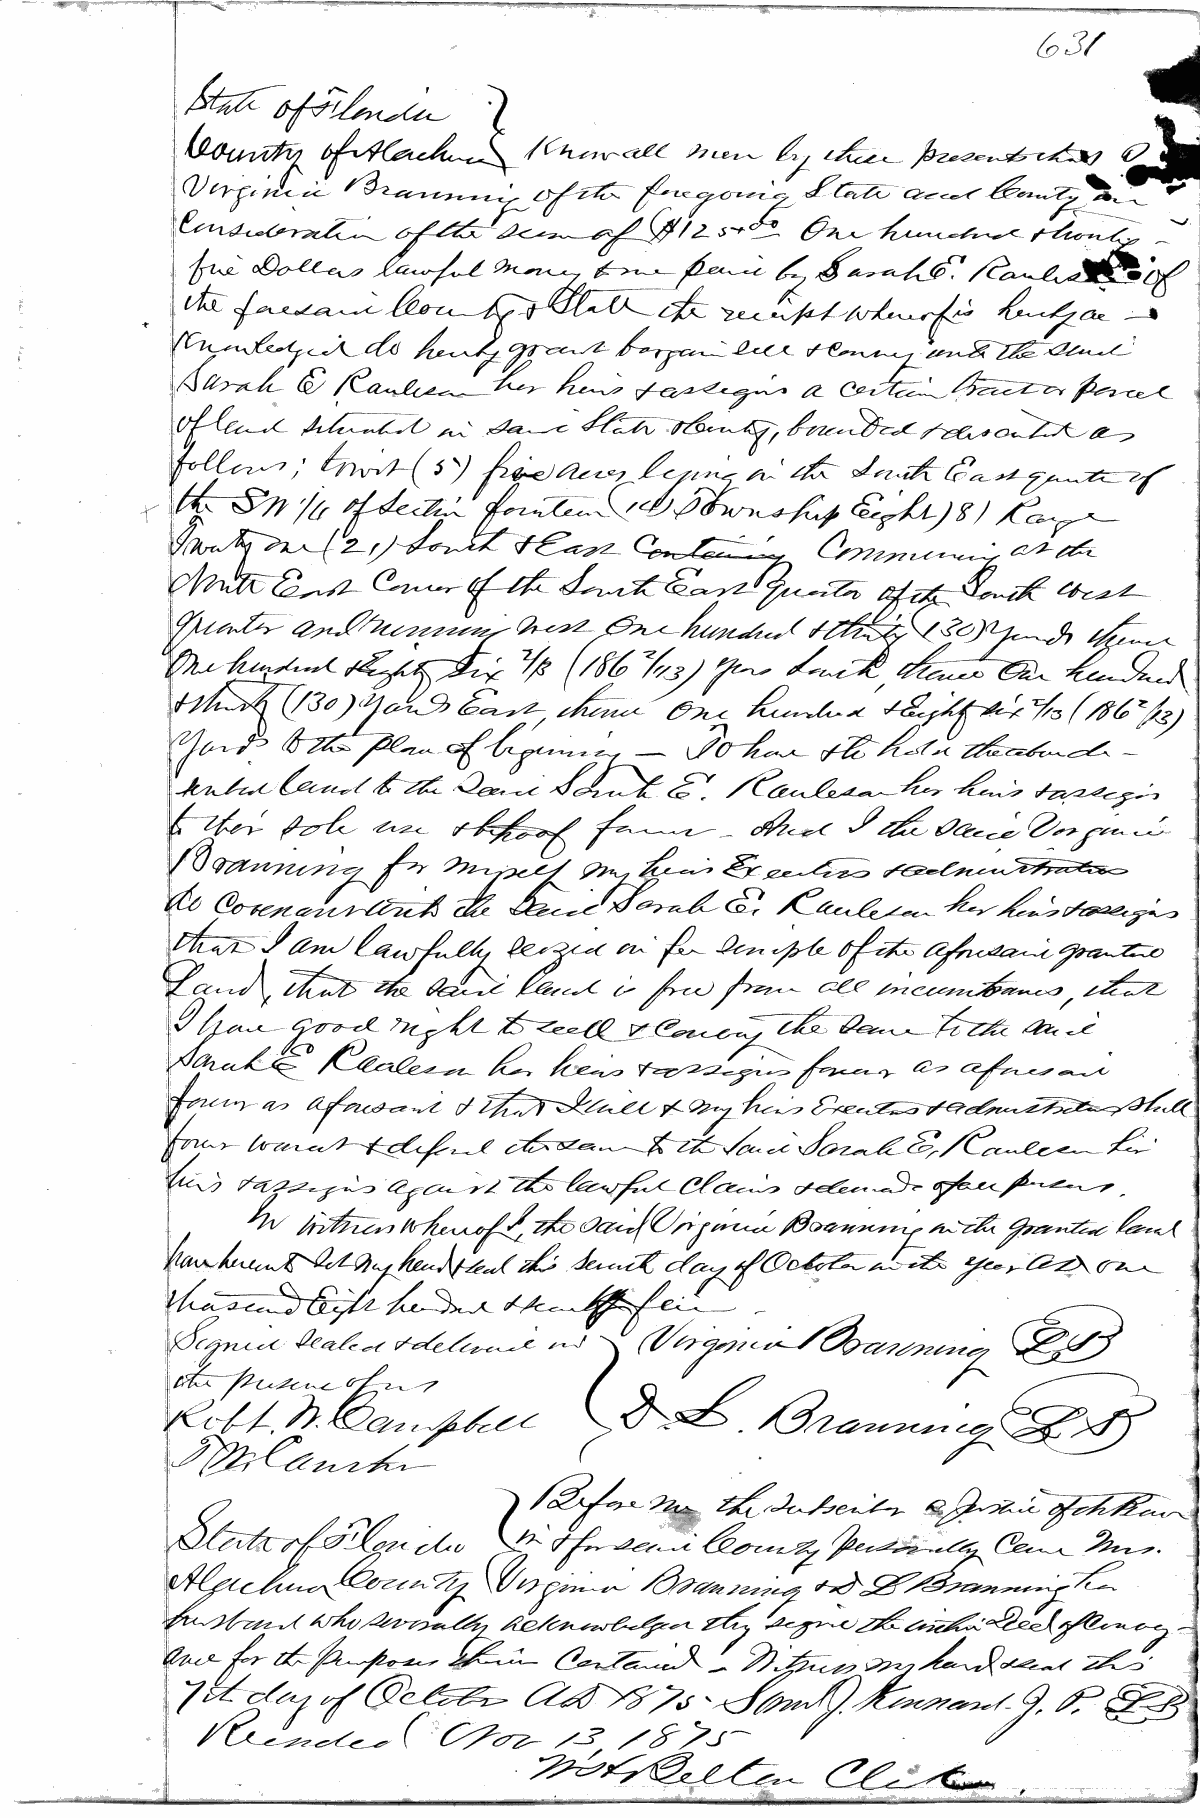 631
State of Florida
County of Alachua Know all men by these presents that I
Virginia Branning of the foregoing State and County in
Consideration of the sum of $125.00 One hundred & twenty-
five Dollars lawful money to me paid by Sarah E. Rauleson of
the foresaid County & State the receipt whereof is hereby ac-
knowledged do hereby grant bargain sell & convey unto the said
Sarah E Rauleson her heirs & assigns a certain tract or parcel
of land situated in said State & County, bounded & described as
follows; towit (5) five acres lying in the South East quarter of
the SW 1/4 of Section fourteen (14) Township Eight (8) Range
Twenty one (21) South & East Containing Commencing at the
North East Corner of the South East quarter of the South West
quarter and running west One hundred & thirty (130) Yards thence
One hundred & Eighty Six 2/13 (186 2/13) Yards South, thence One hundred
& thirty (130) Yards East, thence One hundred & Eighty six 2/13 (186 2/13)
Yards to the place of beginning — To have & to hold the above de-
scribed land to the said Sarah E. Rauleson her heirs & assigns
to their sole use & behoof forever - And I the said Virginia
Branning for myself my heirs Executors & administrators
do covenant with the said Sarah E. Rauleson her heirs & assigns
that I am lawfully seized in fee simple of the aforesaid granted
Land, that the said land is free from all incumbrances, that
I have good right to sell & convey the same to the said
Sarah E Rauleson her heirs & assigns forever as aforesaid
forever as aforesaid & that I will & my heirs Executors & administrators shall
forever warrant & defend the same to the said Sarah E. Rauleson her
heirs & assigns against the lawful claims & demands of all persons.
In witness whereof I, the said Virginia Branning in the granted land
have hereunto set my hand & seal this seventh day of October in the year AD one
thousand Eight hundred & seventy five
Signed sealed & delivered in Virginia Branning LS
the presence of us
Robt. W. Campbell D. L. Branning LS
Before me the subscriber a Justice of the Peace
State of Florida in & for said County personally Came Mrs.
Alachua County Virginia Branning & D L Branning her
husband who severally acknowledged they signed the within Deed of Convey-
ance for the Purposes therein Contained - Witness my hand & seal this
7th day of October AD 1875 - Saml J. Kennard. J. P. LS
Recorded Nov 13, 1875
Belton Clerk